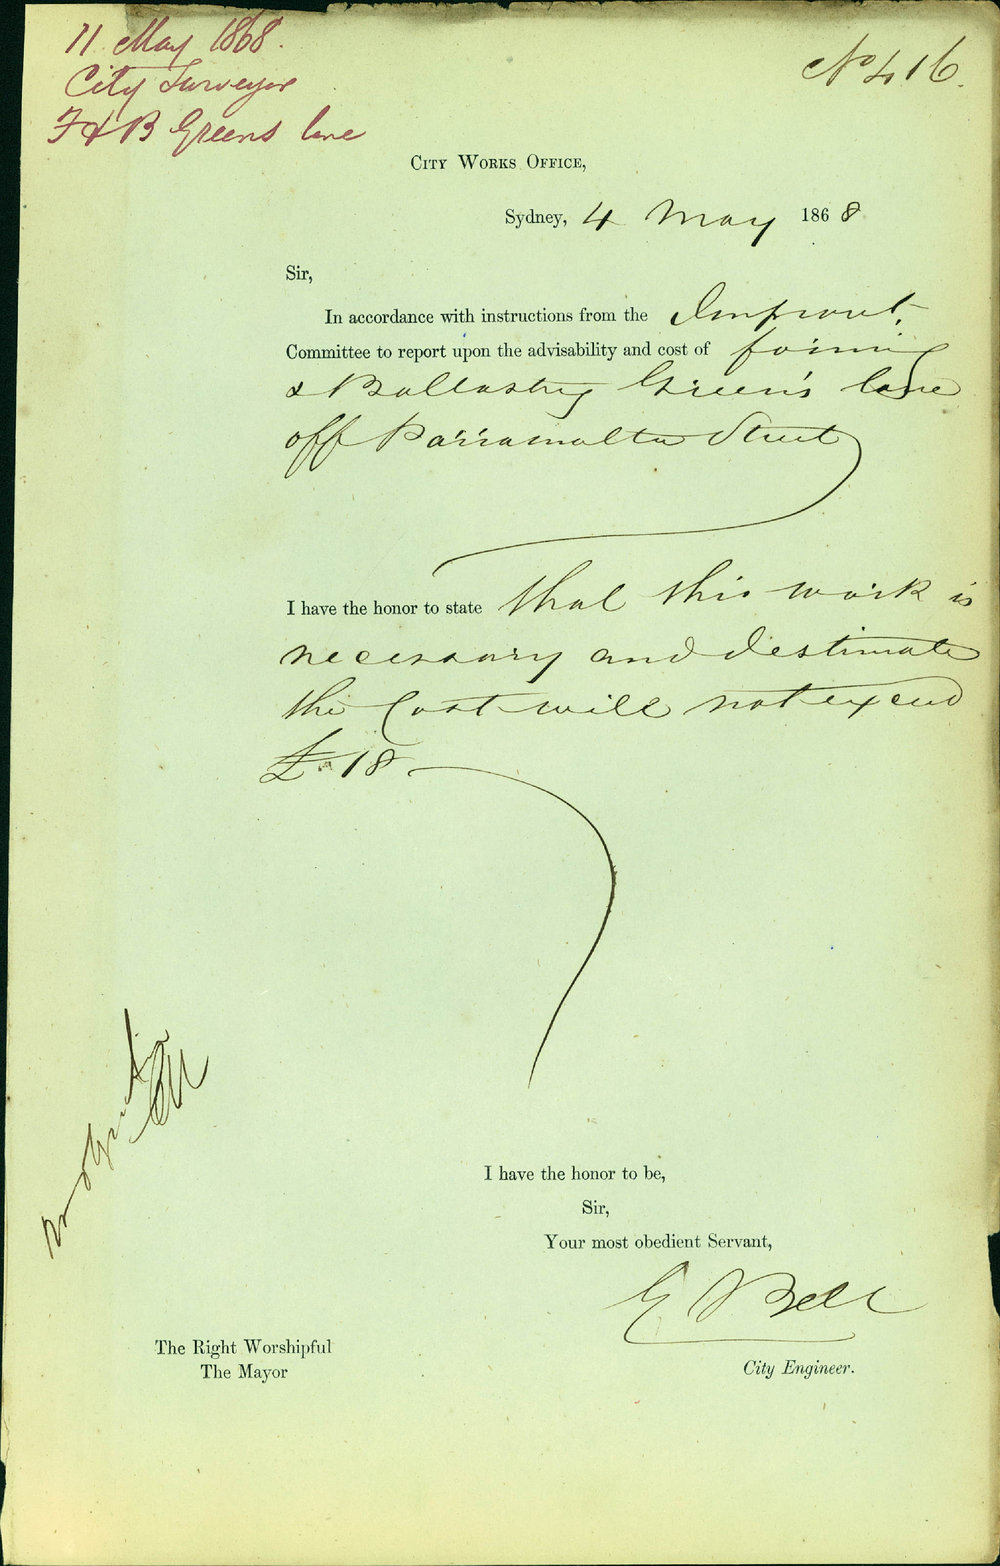 11 May 1868.
City Surveyor
F & B Greens lane
No 416.
City Works Office,
Sydney, 4 May 1868
Sir,
In accordance with instructions from the Improvt.
Committee to report upon the advisability and cost of forming
& Ballasting Green's lane
off Parramatta Street
I have the honor to state that this work is
necessary and I estimate
the Cost will not exceed
£18
I have the honor to be,
Sir,
Your most obedient Servant,
E Bell
The Right Worshipful
The Mayor
City Engineer.